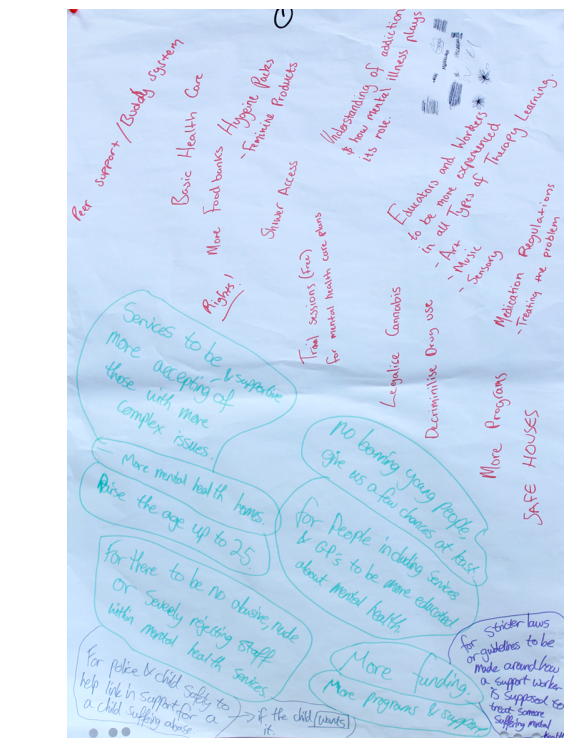 1
Peer support / Buddy system
Basic Health Care
More Food banks
Hygeine Packs
- Feminine Products
Shower Access
Rights!
Understanding of addiction
& how mental illness plays
its role.
Educators and Workers
to be more experienced
in all Types of Therapy Learning.
- Art
- Music
- Sensory
Trial sessions (Free)
for mental health care plans
Legalice Cannabis
Decriminilise Drug use
Medication Regulations
- Treating the problem
More Programs
SAFE HOUSES
Services to be & supportive
more accepting of
those with more
complex issues.
More mental health homes.
Raise the age up to 25
For there to be no abusive, rude
or severely rejecting staff
within mental health services
For police & child safety to
help link in support for a
a child suffering abuse
→ if the child wants
it.
no banning young people,
give us a few chances at least.
for People including services
& GP's to be more educated
about mental health.
More funding.
More programs & support
for stricter laws
or guidelines to be
made around how
a support worker
is supposed to
treat someone
suffering mental
health